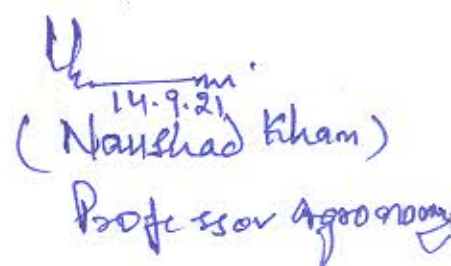 14.9.21
(Naushad Khan)
Professor Agronomy